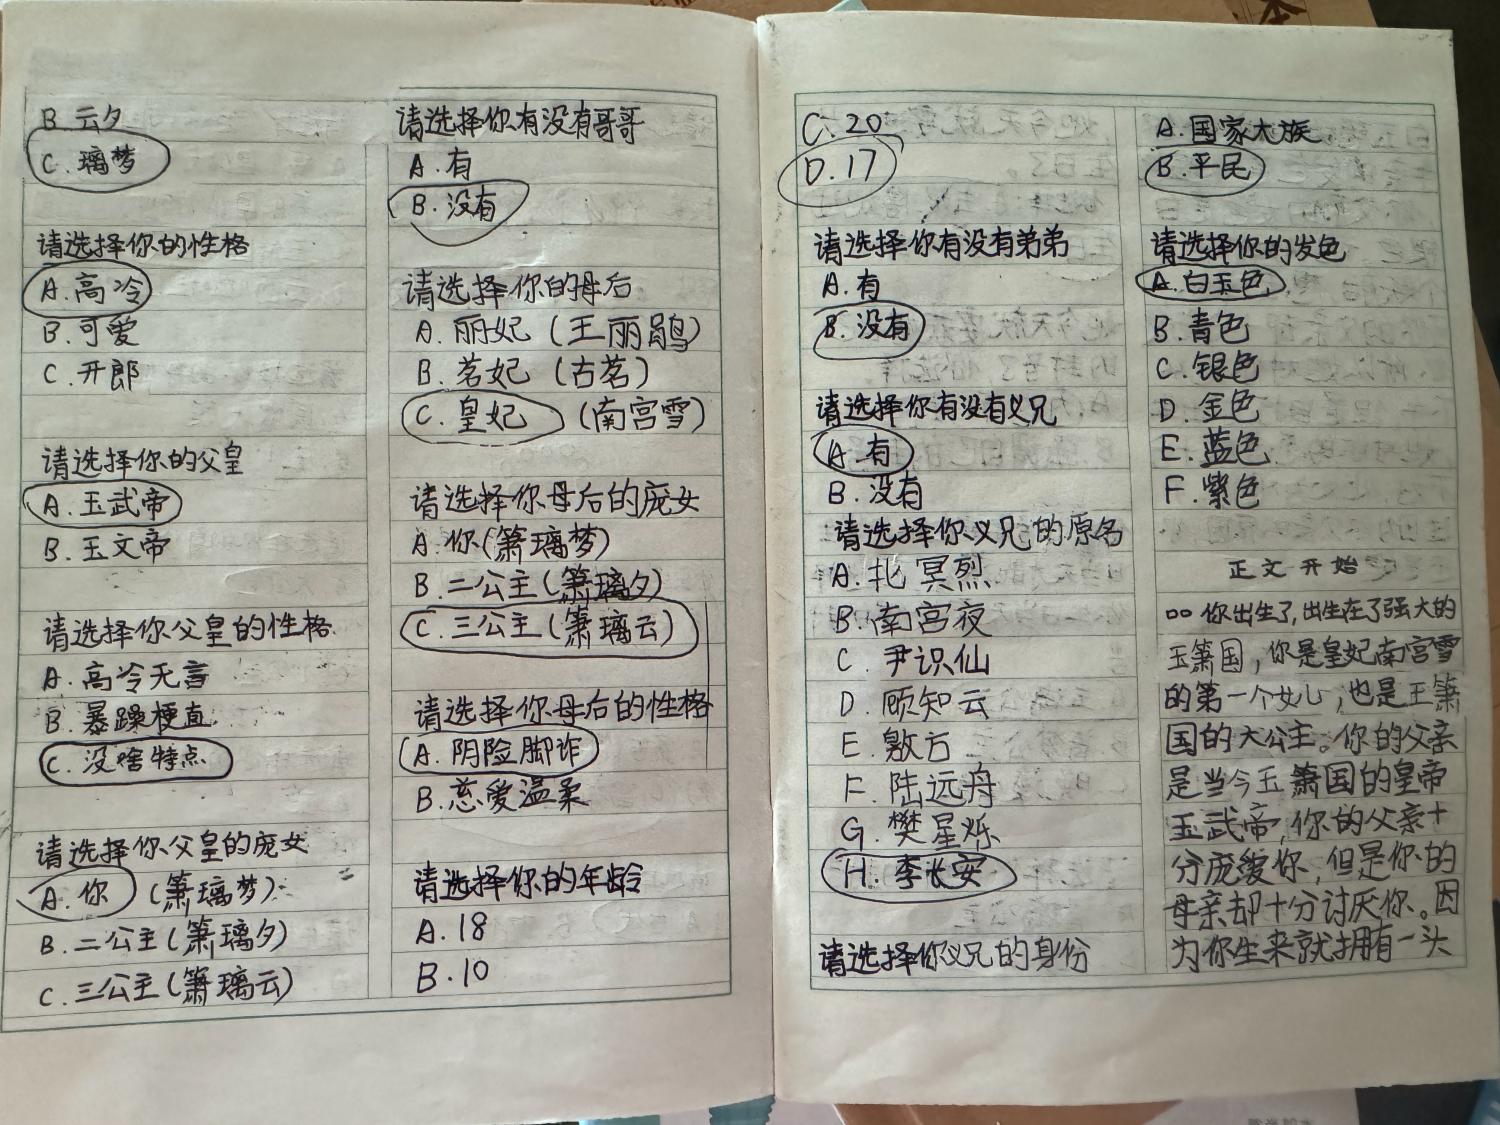 B 云夕
C. 璃梦
请选择你的性格
A. 高冷
B. 可爱
C. 开郎
请选择你的父皇
A. 玉武帝
B. 玉文帝
请选择你父皇的性格
A. 高冷无言
B. 暴躁梗直
C. 没啥特点
请选择你父皇的庞女
A. 你 (箫璃梦)
B. 二公主(箫璃夕)
C. 三公主(箫璃云)
请选择你有没有哥哥
A. 有
B. 没有
请选择你的母后
A. 丽妃 (王丽鹃)
B. 茗妃 (古茗)
C. 皇妃 (南宫雪)
请选择你母后的庞女
A. 你(箫璃梦)
B. 二公主(箫璃夕)
C. 三公主(箫璃云)
请选择你母后的性格
A. 阴险脚诈
B. 慈爱温柔
请选择你的年龄
A. 18
B. 10
C. 20
D. 17
请选择你有没有弟弟
A. 有
B. 没有
请选择你有没有义兄
A. 有
B. 没有
请选择你义兄的原名
A. 北冥烈
B. 南宫夜
C. 尹识仙
D. 顾知云
E. 敫方
F. 陆远舟
G. 樊星烁
H. 李长安
请选择你义兄的身份
A. 国家大族
B. 平民
请选择你的发色
A. 白玉色
B. 青色
C. 银色
D. 金色
E. 蓝色
F. 紫色
正文开始
你出生了,出生在了强大的
玉箫国,你是皇妃南宫雪
的第一个女儿,也是玉箫
国的大公主。你的父亲
是当今玉箫国的皇帝
玉武帝,你的父亲十
分庞爱你,但是你的
母亲却十分讨厌你。因
为你生来就拥有一头